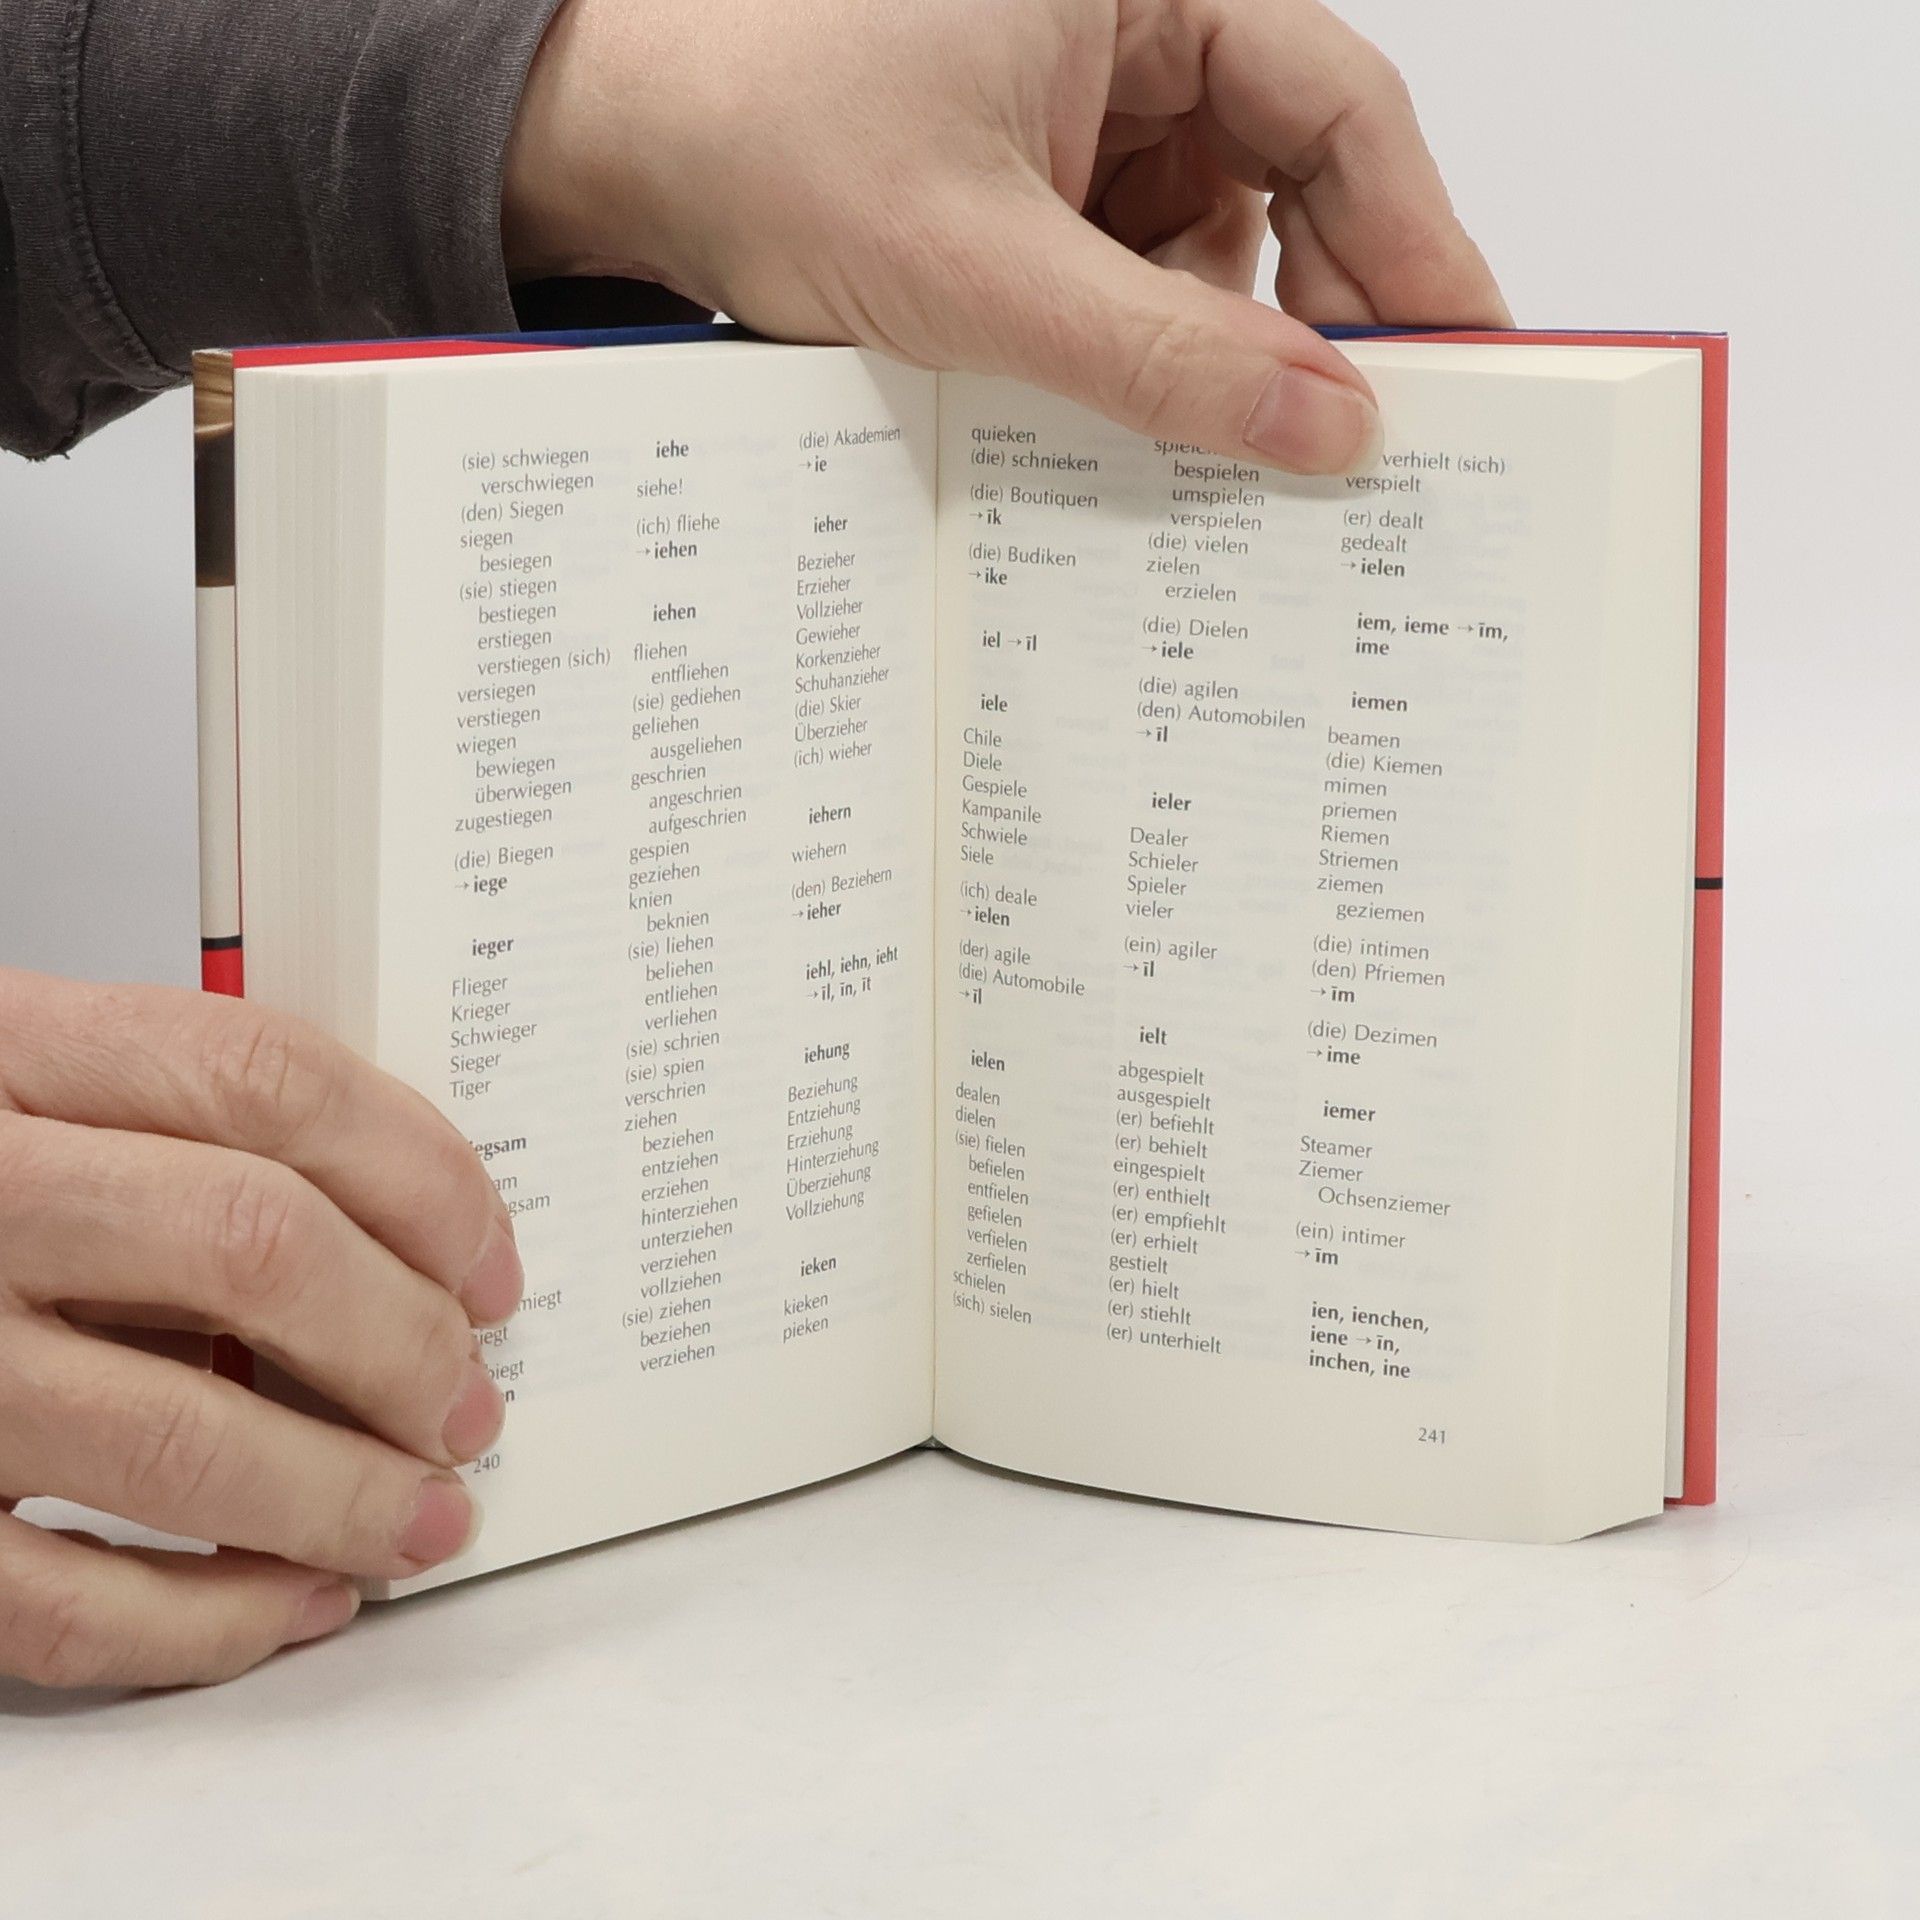 (sie) schwiegen
verschwiegen
(den) Siegen
siegen
besiegen
(sie) stiegen
bestiegen
erstiegen
verstiegen (sich)
versiegen
verstiegen
wiegen
bewiegen
überwiegen
zugestiegen
(die) Biegen
→iege
ieger
Flieger
Krieger
Schwieger
Sieger
Tiger
240
iehe
siehe!
(ich) fliehe
→iehen
iehen
fliehen
entfliehen
(sie) gediehen
geliehen
ausgeliehen
geschrien
angeschrien
aufgeschrien
gespien
geziehen
knien
beknien
(sie) liehen
beliehen
entliehen
verliehen
(sie) schrien
(sie) spien
verschrien
ziehen
beziehen
entziehen
erziehen
hinterziehen
unterziehen
verziehen
vollziehen
(sie) ziehen
beziehen
verziehen
(die) Akademien
→ie
ieher
Bezieher
Erzieher
Vollzieher
Gewieher
Korkenzieher
Schuhanzieher
(die) Skier
Überzieher
(ich) wieher
iehern
wiehern
(den) Beziehern
→ieher
iehl, iehn, ieht
→īl, īn, īt
iehung
Beziehung
Entziehung
Erziehung
Hinterziehung
Überziehung
Vollziehung
ieken
kieken
pieken
quieken
(die) schnieken
(die) Boutiquen
→īk
(die) Budiken
→ike
iel →īl
iele
Chile
Diele
Gespiele
Kampanile
Schwiele
Siele
(ich) deale
→ielen
(der) agile
(die) Automobile
→īl
ielen
dealen
dielen
(sie) fielen
befielen
entfielen
gefielen
verfielen
zerfielen
schielen
(sich) sielen
bespielen
umspielen
verspielen
(die) vielen
zielen
erzielen
(die) Dielen
→iele
(die) agilen
(den) Automobilen
→īl
ieler
Dealer
Schieler
Spieler
vieler
(ein) agiler
→īl
ielt
abgespielt
ausgespielt
(er) befiehlt
(er) behielt
eingespielt
(er) enthielt
(er) empfiehlt
(er) erhielt
gestielt
(er) hielt
(er) stiehlt
(er) unterhielt
verhielt (sich)
verspielt
(er) dealt
gedealt
→ielen
iem, ieme →īm,
ime
iemen
beamen
(die) Kiemen
mimen
priemen
Riemen
Striemen
ziemen
geziemen
(die) intimen
(den) Pfriemen
→īm
(die) Dezimen
→ime
iemer
Steamer
Ziemer
Ochsenziemer
(ein) intimer
→īm
ien, ienchen,
iene →īn,
inchen, ine
241